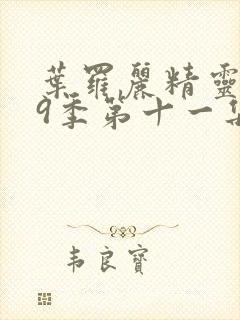 葉羅麗精靈
9季第十一集
韦良寶